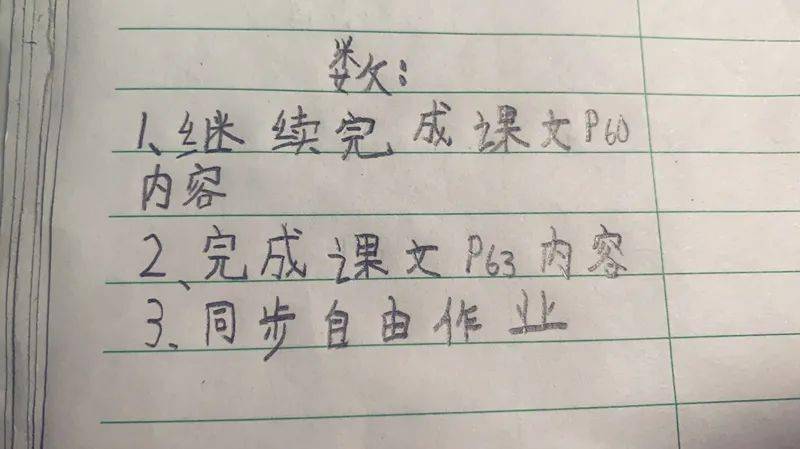 数:
1、继续完成课文P60
内容
2、完成课文P63内容
3、同步自由作业